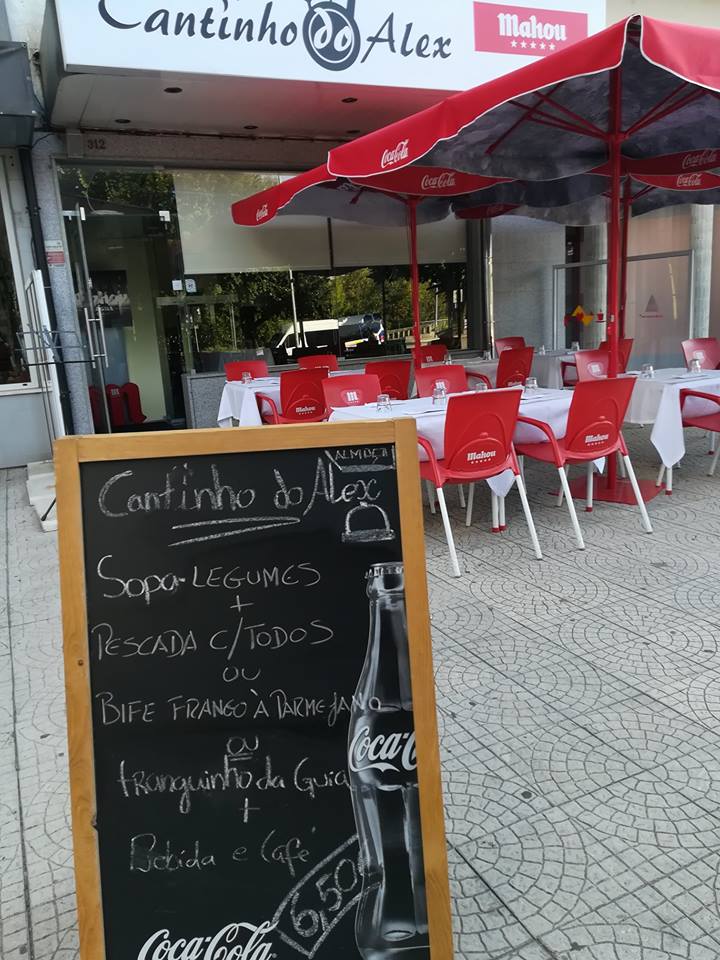 Cantinho do Alex
Mahou
Coca-Cola
Coca-Cola
Coca-Cola
Coca-Cola
Coca-Cola
312
Mahou
Mahou
Mahou
Cantinho do Alex
Sopa-LEGUMES
+
PESCADA C/TODOS
OU
BIFE FRANGO À PARMEJANO
OU
franguinho da Guia
+
Bebida e Café
6,50
Coca-C
Coca-Cola